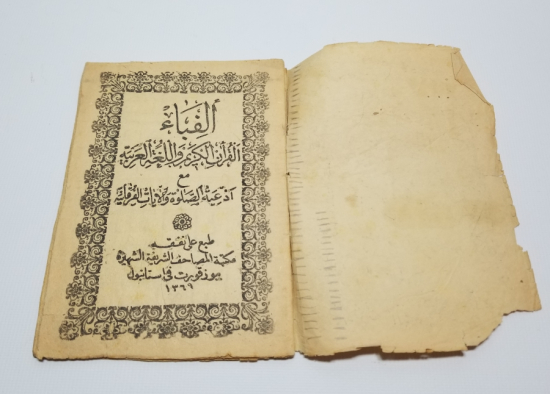 ألفباء
القرآن الكريم واللغة العربية
مع
أدعية الصلوة والآيات القرآنية
طبع على نفقة
مكتبة المصاحف الشريفة الشهيرة
بوزقورت في استانبول
١٣٦٩